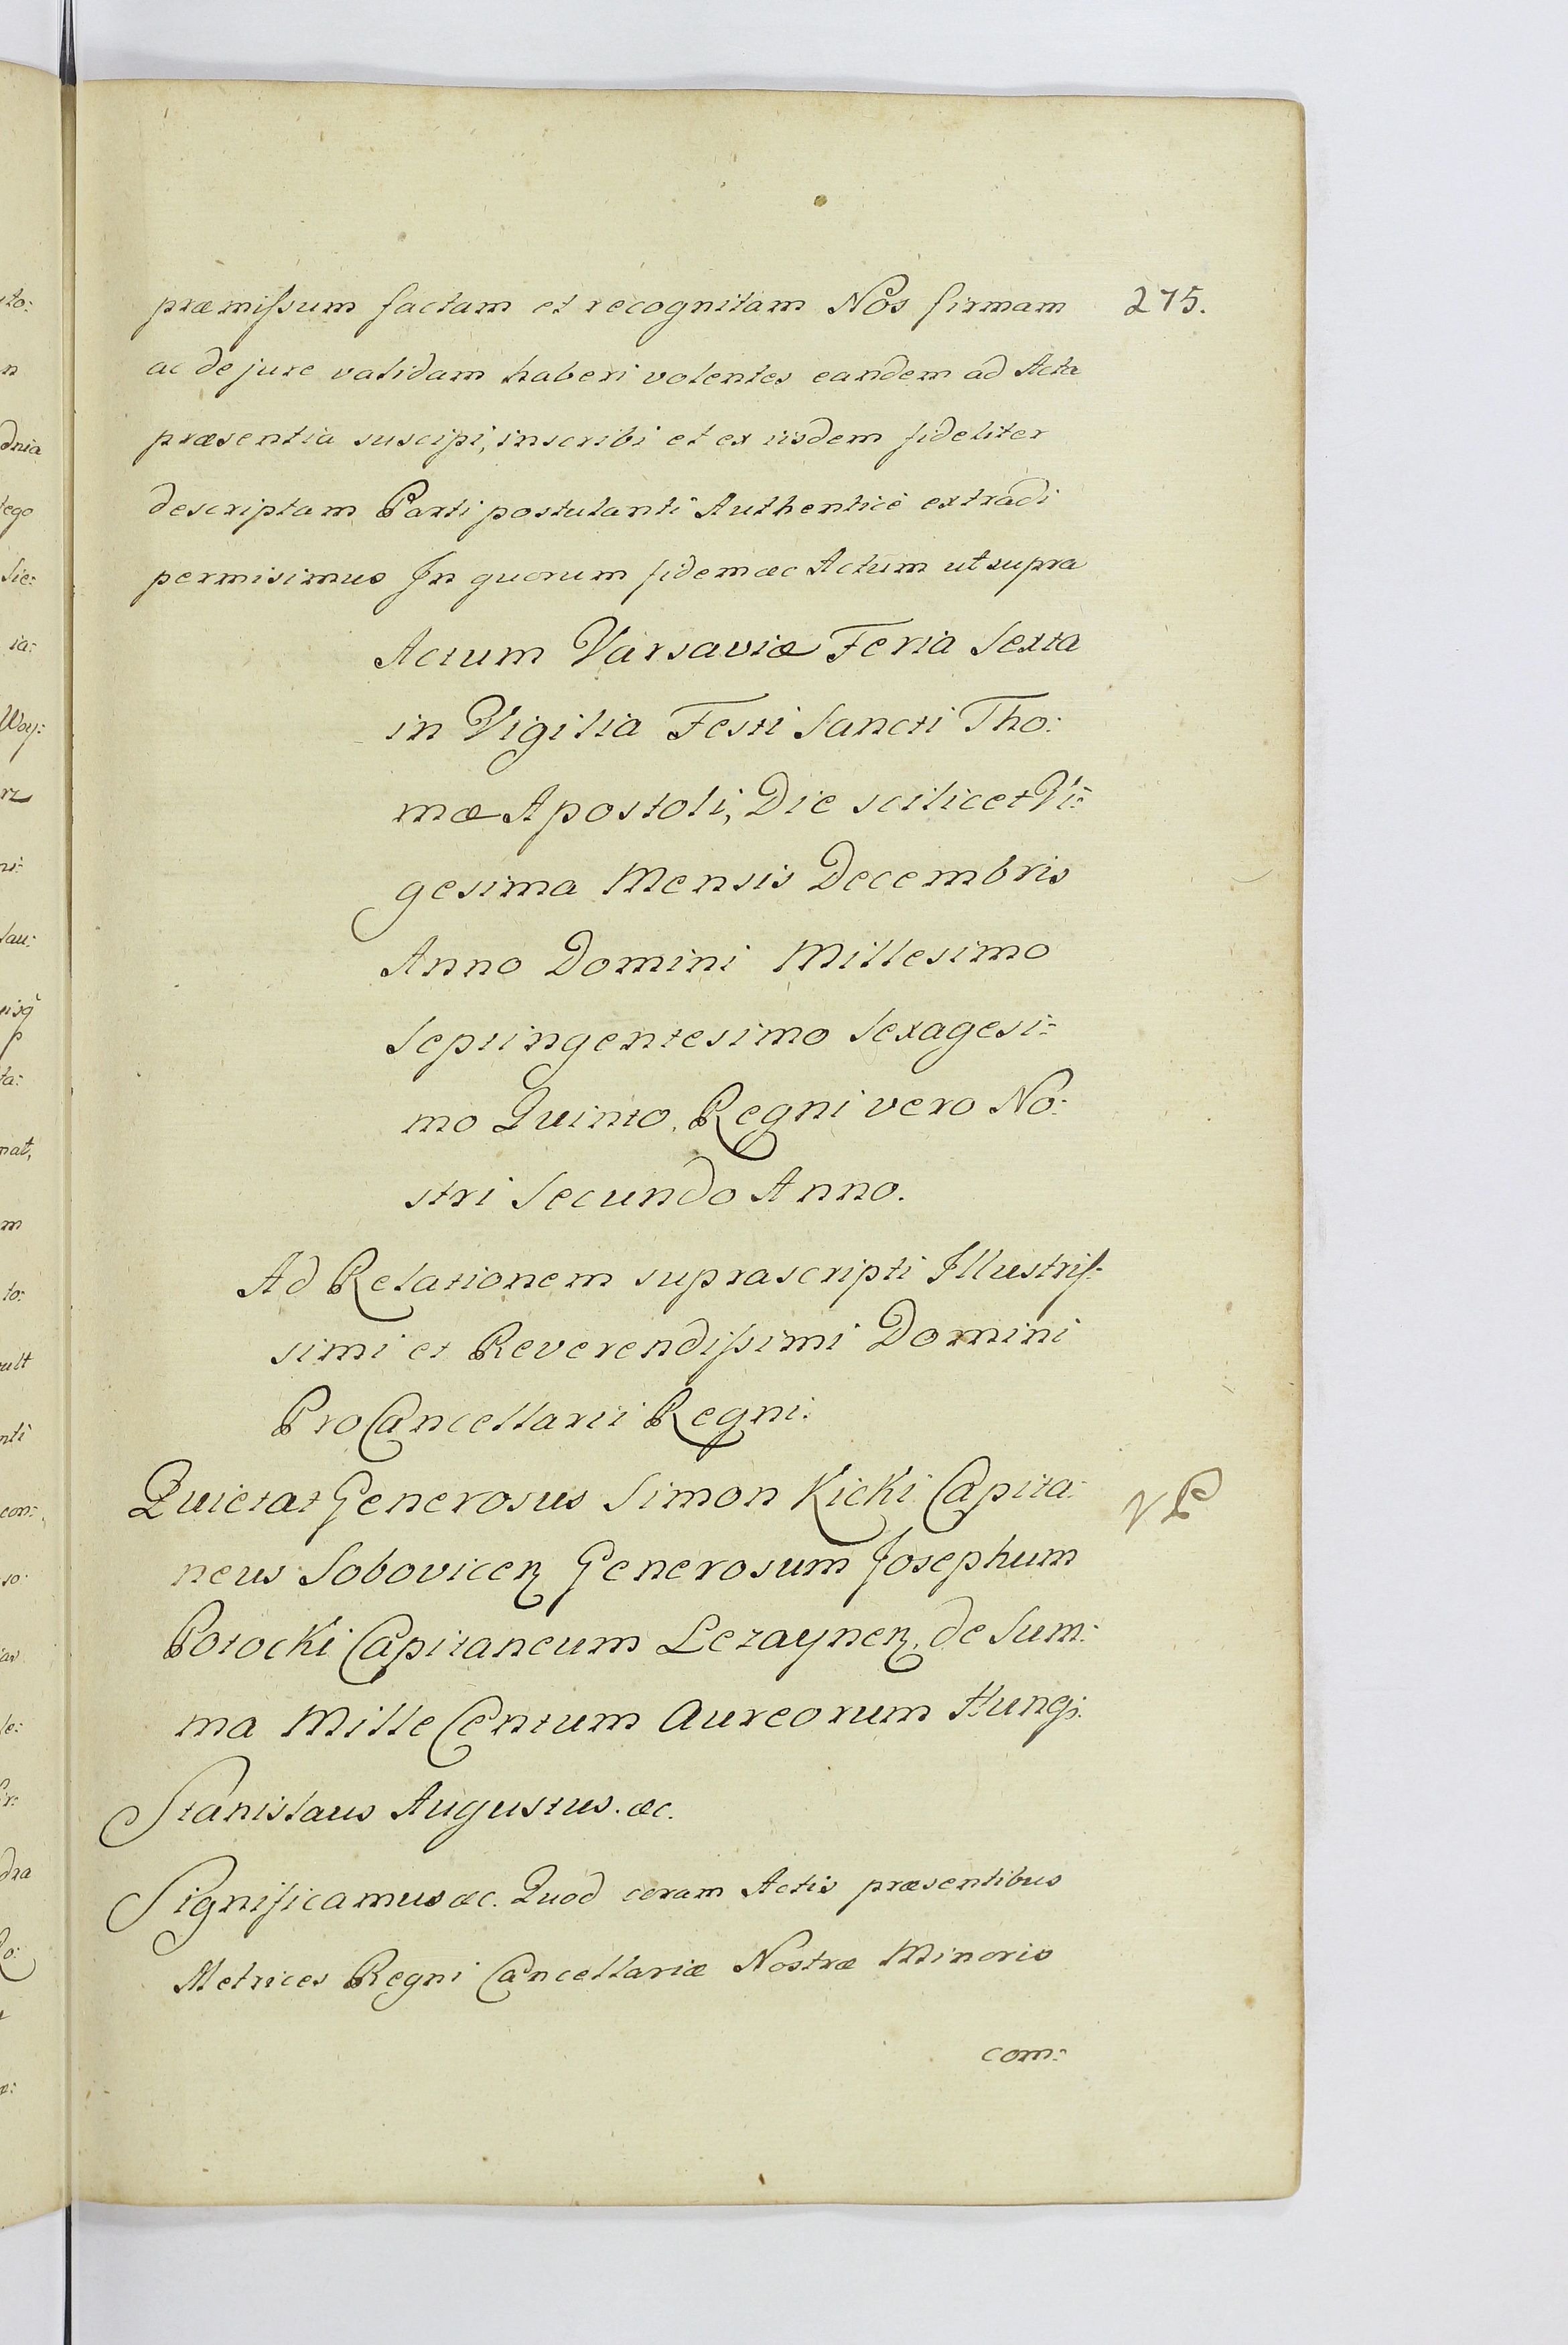 præmiſsum factam et recognitam Nos firmam 275.
ac de jure validam haberi volentes eandem ad Acta
præsentia suscipi, inscribi et ex iisdem fideliter
descriptam Parti postulanti Authenticè extradi
permisimus In quorum fidem æc Actum ut supra
Actum Varsaviæ Feria Sexta
in Vigilia Festi Sancti Tho:
mæ Apostoli, Die scilicet Vi:
gesima Mensis Decembris
Anno Domini Millesimo
Septingentesimo Sexagesi:
mo Quinto, Regni vero No:
stri Secundo Anno.
Ad Relationem suprascripti Illustriſ:
simi et Reverendiſsimi Domini
ProCancellarii Regni.
Quietat Generosus Simon Kicki Capita:
neus Sobovicen Generosum Josephum
Potocki Capitaneum Lezaynen, de Sum:
ma Mille Centum Aureorum Hung:
Stanislaus Augustus. æc.
Significamus æc. Quod coram Actis præsentibus
Metrices Regni Cancellariæ Nostræ Minoris
com: